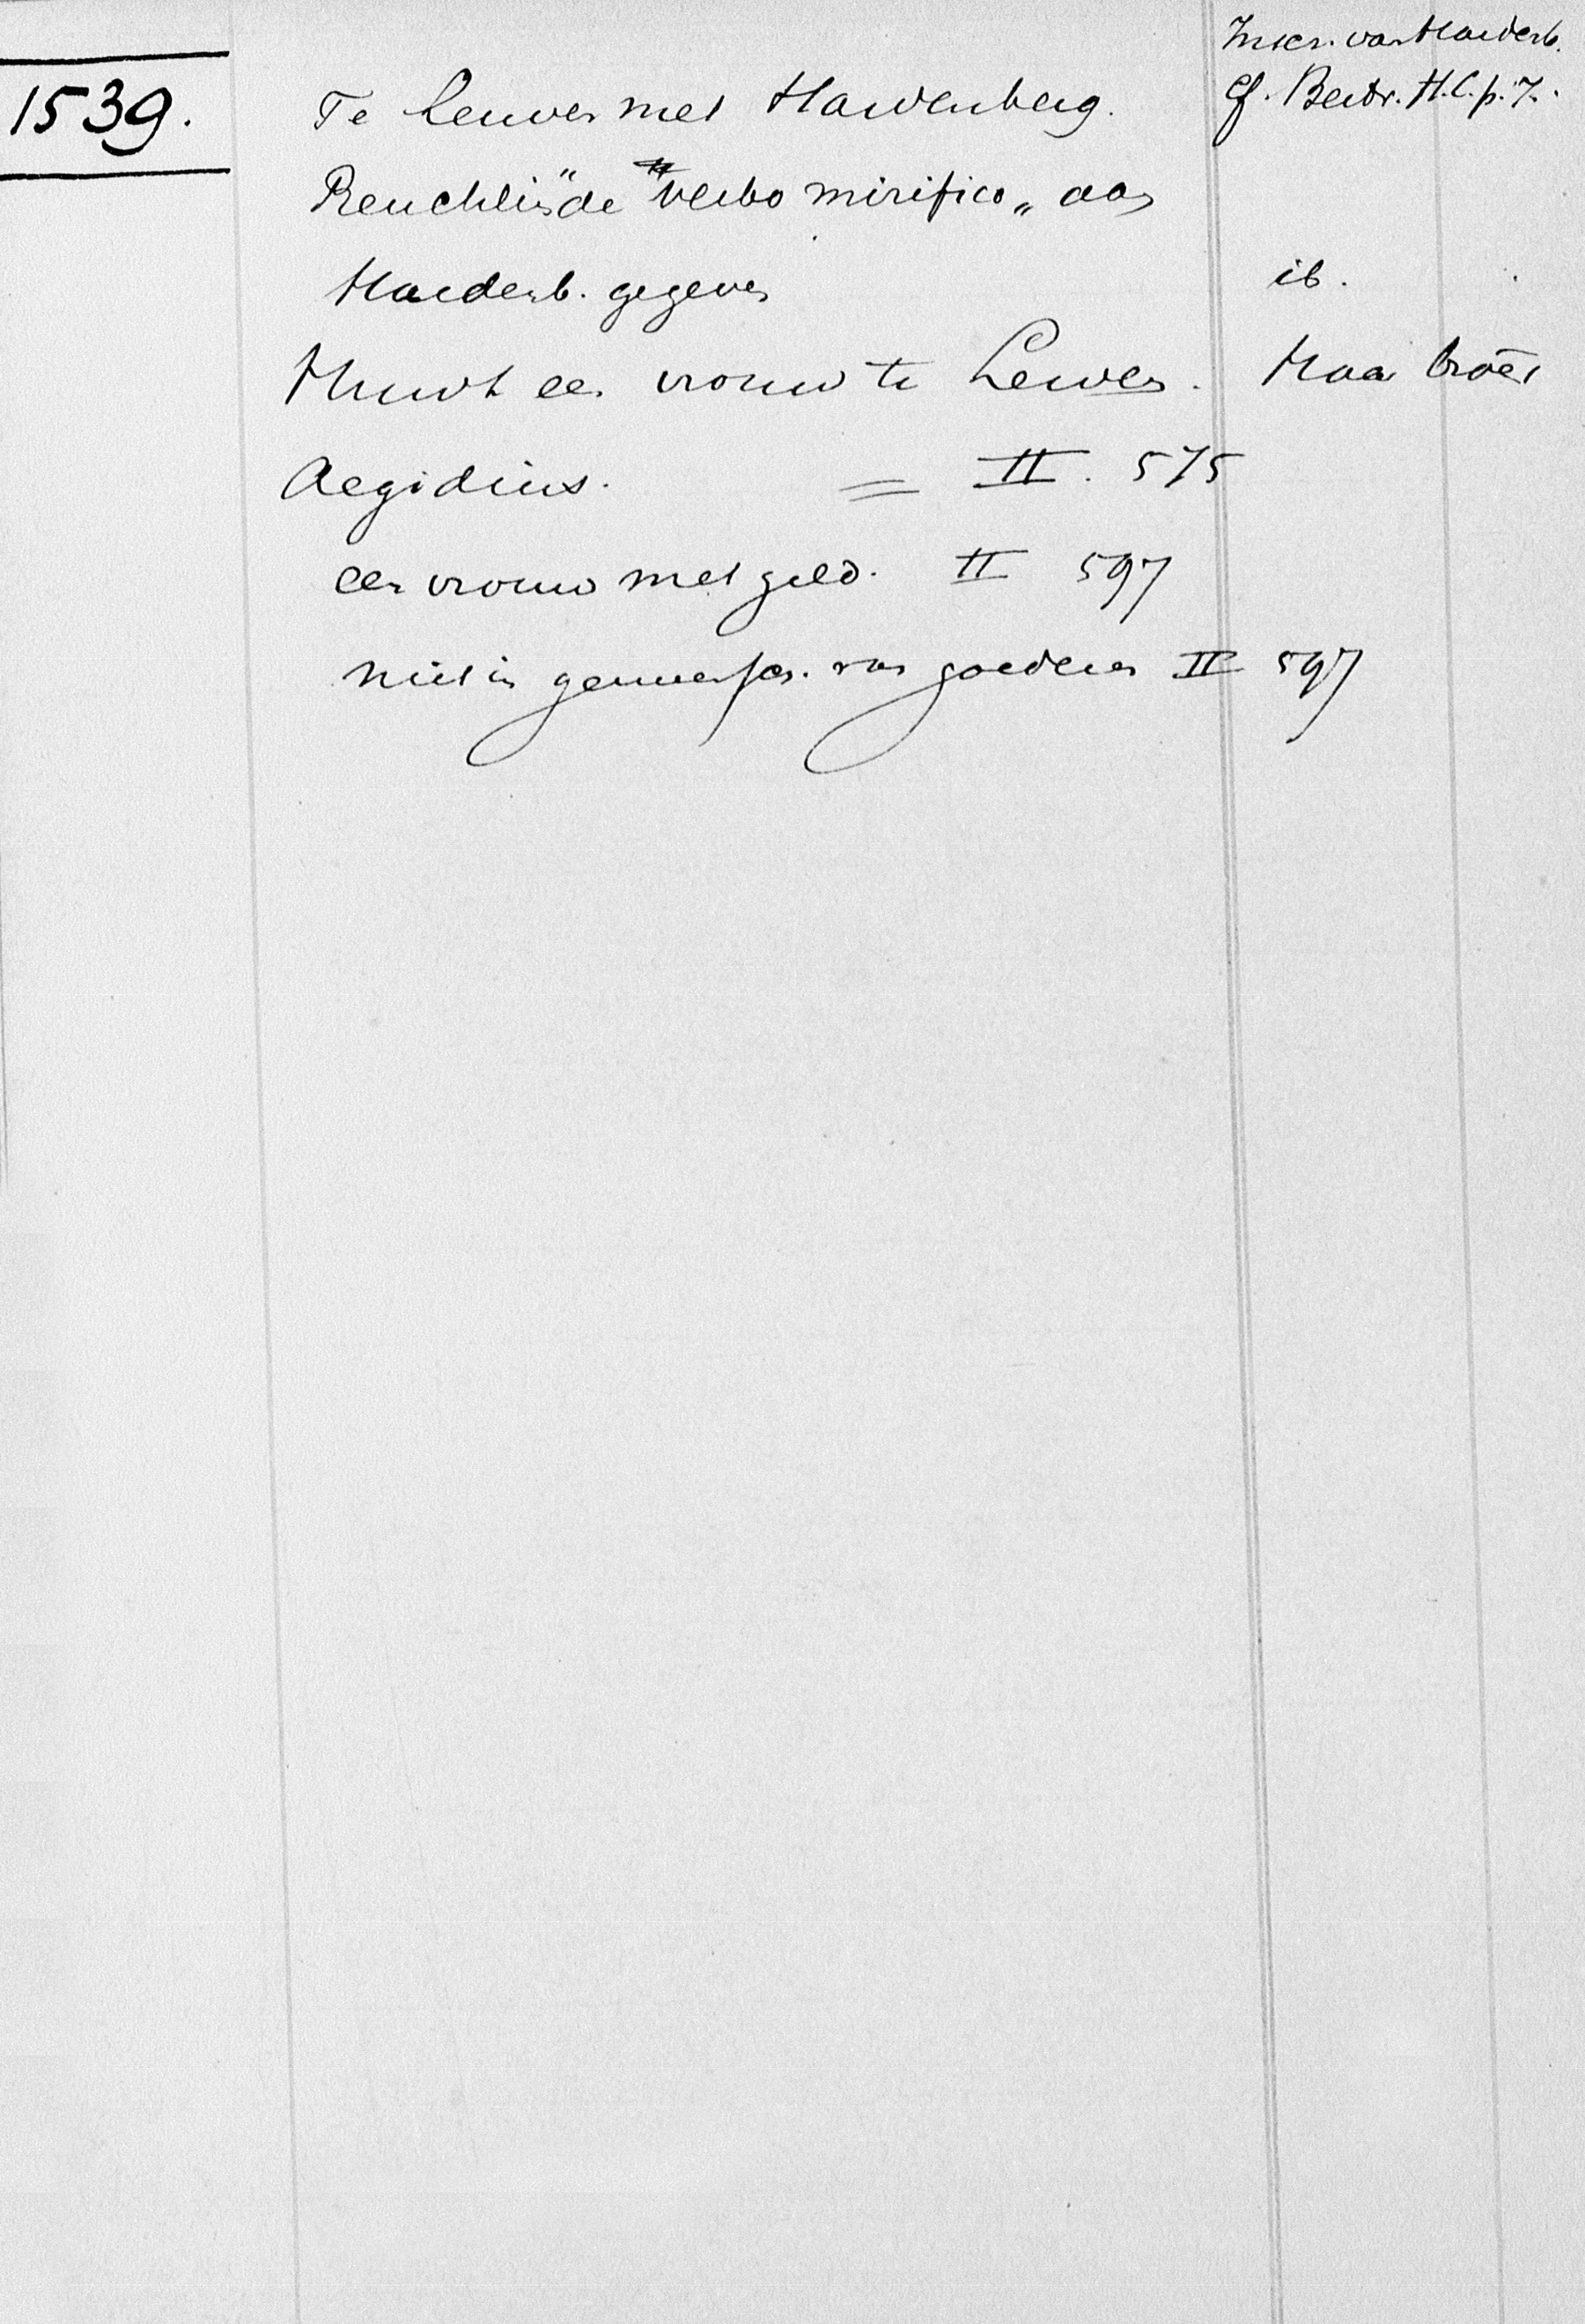 Inscr. van Hardenb.
1539.
Te Leuven met Hardenberg.
Cf. Bertr. H.C. p. 7.
Reuchlin "de verbo mirifico" aan
Hardenb. gegeven
ib.
Huwt een vrouw te Leuven.
Maar
Aegidius. = II. 575
een vrouw met geld. II 597
niet in gemeensch. van goederen II 597